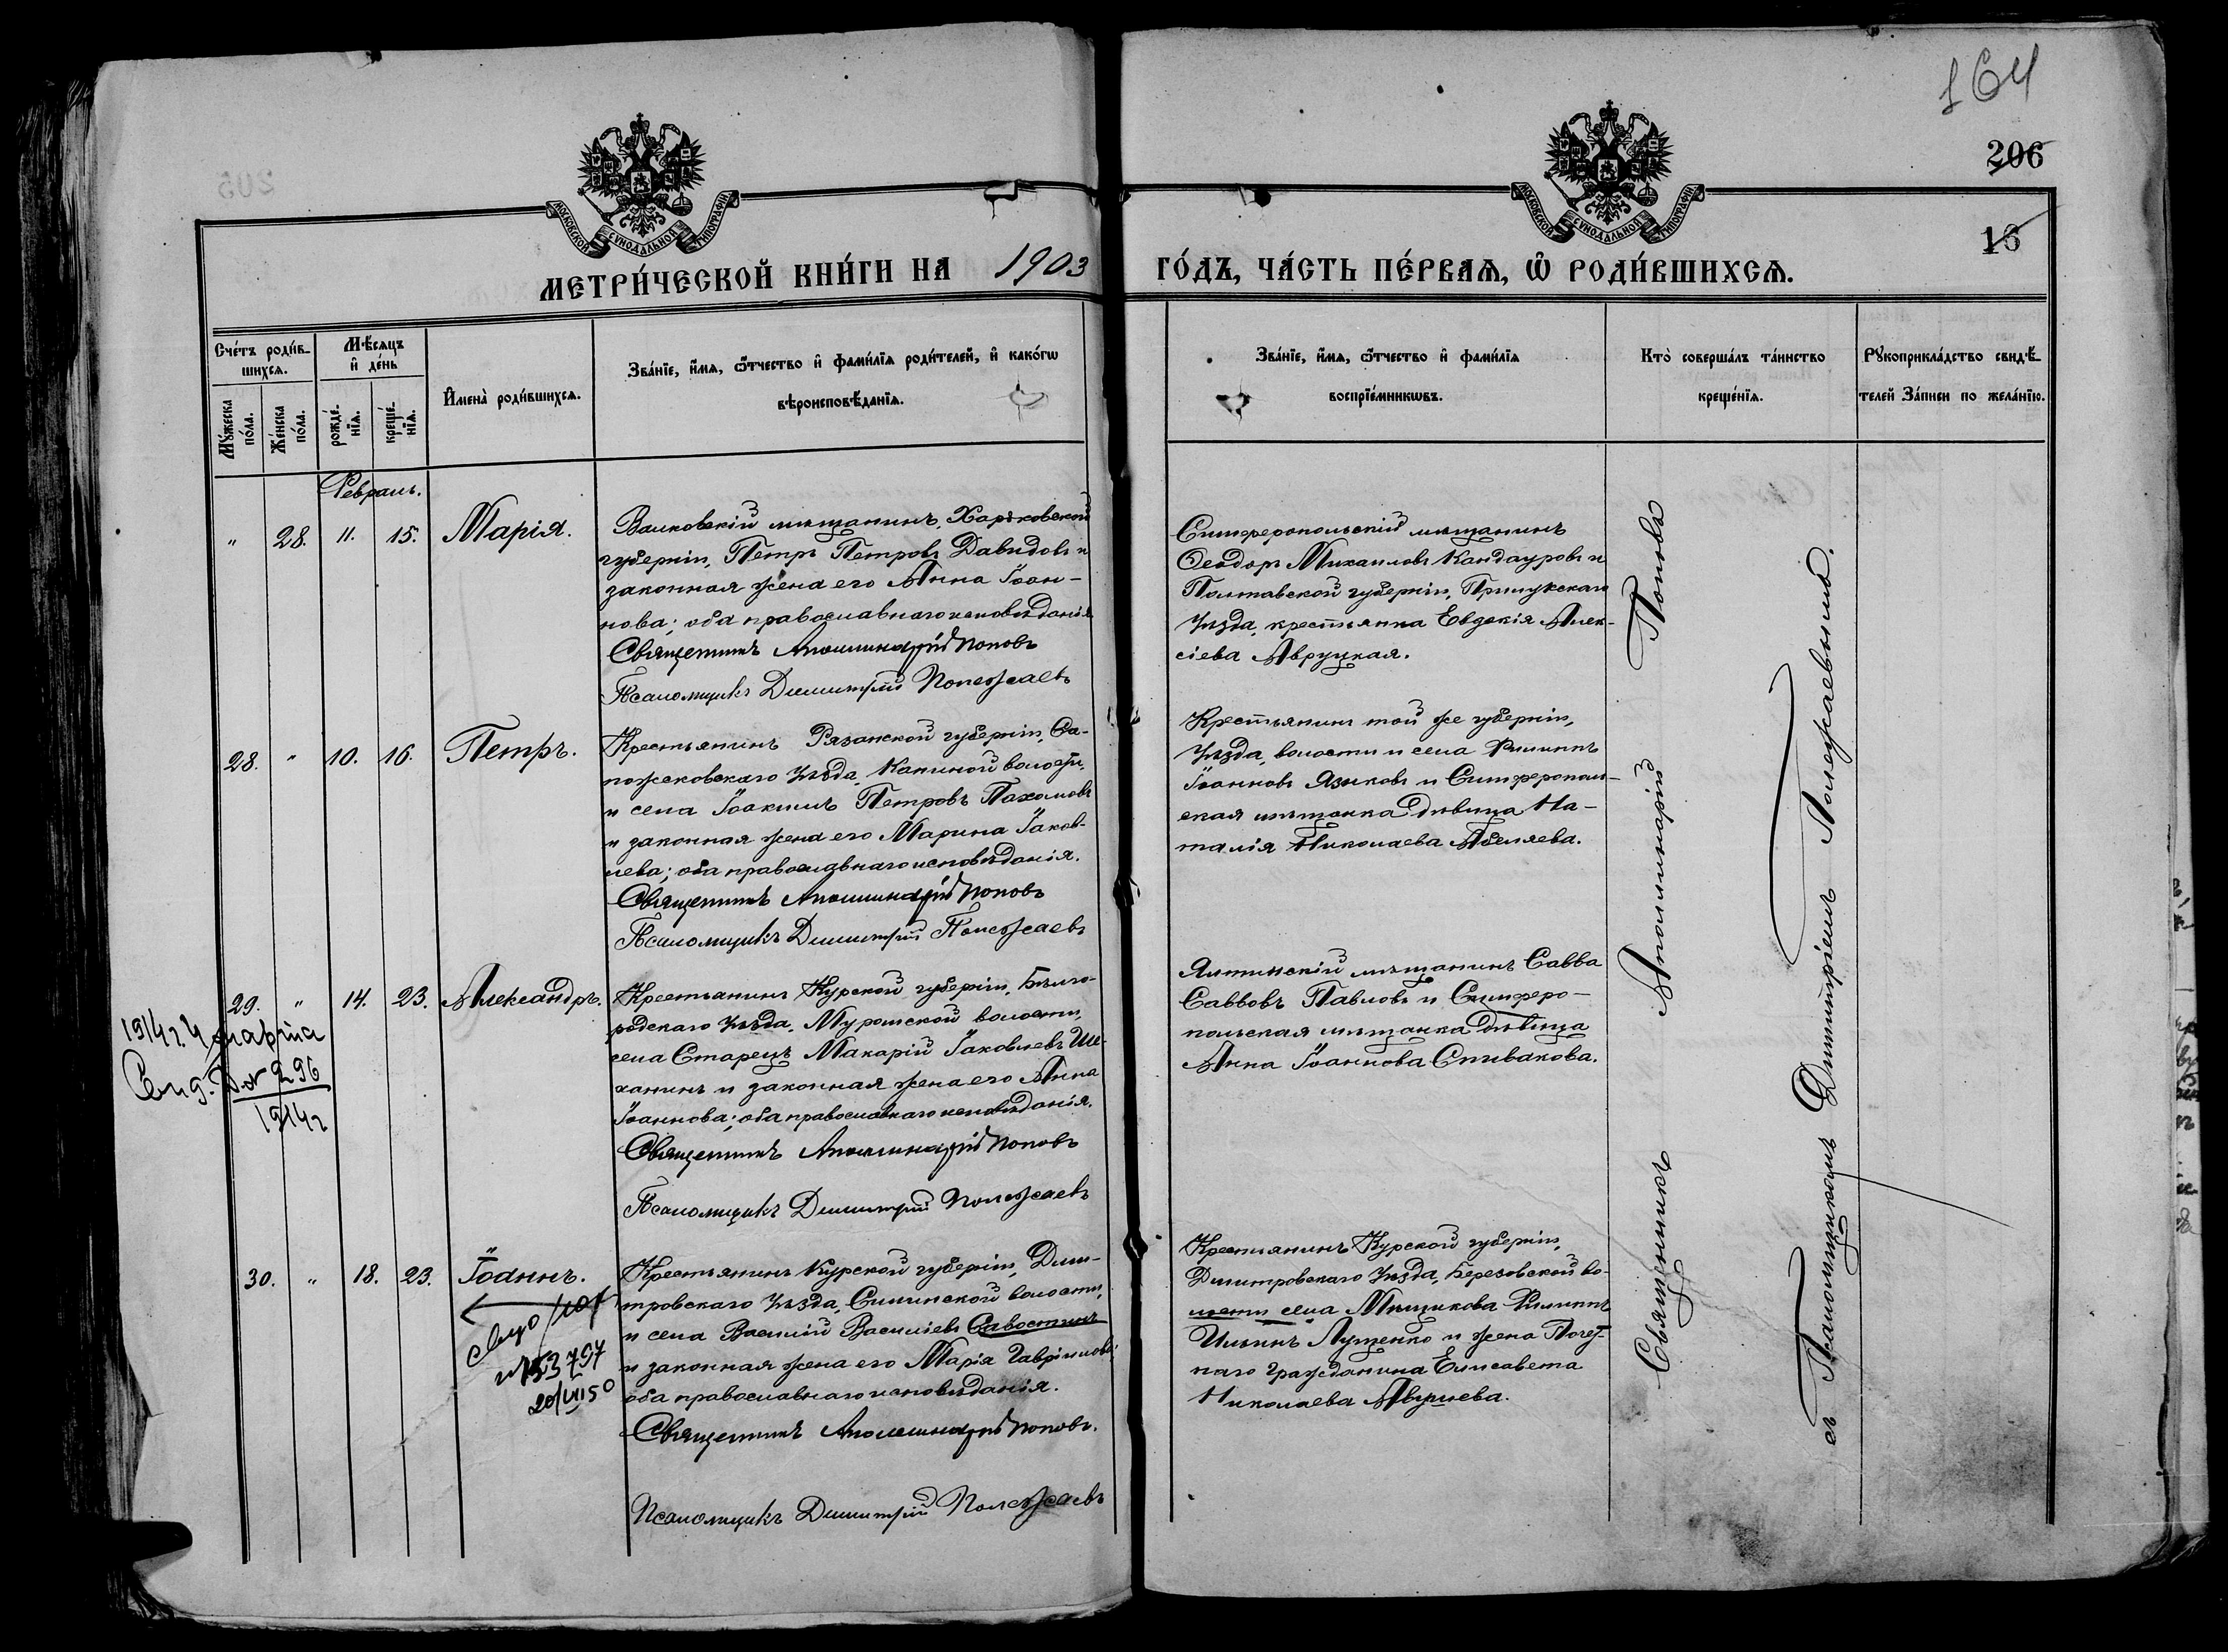 164
206
16
МОСКОВСКОЙ СѴНОДАЛЬНОЙ ТИПОГРАФІИ
МОСКОВСКОЙ СѴНОДАЛЬНОЙ ТИПОГРАФІИ
МЕТРИ́ЧЕСКОЙ КНИ́ГИ НА 1903 ГО́ДЪ, ЧА́СТЬ ПЕ́РВАѦ, Ѡ҆ РОДИ́ВШИХСѦ.
Сче́тъ роди́в-
шихсѧ.
Мѣ́сѧцъ
и҆ де́нь
Мꙋ́жеска
по́ла.
Же́нска
по́ла.
рожде́-
нїѧ.
креще́-
нїѧ.
И҆мена̀ роди́вшихсѧ.
Зва́нїе, и҆́мѧ, ѻ҆́тчество и҆ фами́лїѧ роди́телей, и҆ како́гѡ
вѣроисповѣ́данїѧ.
Зва́нїе, и҆́мѧ, ѻ҆́тчество и҆ фами́лїѧ
воспрїе́мникѡвъ.
Кто̀ соверша́лъ та́инство
креще́нїѧ.
Рꙋкоприкла́дство свидѣ́-
телей За́писи по жела́нїю.
Февраль.
" 28. 11. 15. Марія.
Валковскій мѣщанинъ, Харьковской
губерніи, Петръ Петровъ Давидовъ и
законная жена его Анна Іоан-
нова; оба православнаго исповѣданія
Священникъ Аполлинарій Поповъ
Псаломщикъ Димитрій Полежаевъ
Симферопольскій мѣщанинъ
Ѳеодоръ Михаиловъ Кандауровъ и
Полтавской губерніи, Прилукскаго
уѣзда, крестьянка Евдокія Алек-
сіева Авруцкая.
28. " 10. 16. Петръ.
Крестьянинъ Рязанской губерніи, Са-
пожковскаго уѣзда, Каниной волости,
и села Іоакимъ Петровъ Пахомовъ
и законная жена его Марина Іаков-
лева; оба православнаго исповѣданія.
Священникъ Аполлинарій Поповъ
Псаломщикъ Димитрій Полежаевъ
Крестьянинъ той же губерніи,
уѣзда, волости и села Филиппъ
Іоанновъ Языковъ и Симферополь-
ская мѣщанка дѣвица На-
талія Николаева Абеляева.
29. " 14. 23. Александръ.
1914 г. 4 марта
№ 296
1914 г
Крестьянинъ Курской губерніи, Бѣлго-
родскаго уѣзда, Муромской волости,
села Старецъ Макарій Іаковлевъ Ше-
ханинъ и законная жена его Анна
Іоаннова; оба православнаго исповѣданія.
Священникъ Аполлинарій Поповъ
Псаломщикъ Димитрій Полежаевъ
Ялтинскій мѣщанинъ Савва
Саввовъ Павловъ и Симферо-
польская мѣщанка дѣвица
Анна Іоаннова Спивакова.
30. " 18. 23. Іоаннъ.
20/VII 50
Крестьянинъ Курской губерніи, Дми-
тровскаго уѣзда, Сининской волости,
и села Василій Василіевъ Савостинъ
и законная жена его Марія Гавріилова;
оба православнаго исповѣданія.
Священникъ Аполлинарій Поповъ.
Псаломщикъ Димитрій Полежаевъ
Крестьянинъ Курской губерніи,
Дмитровскаго уѣзда, Березовской во-
лости села Мѣщикова Филиппъ
Ильинъ Лущенко и жена Почет-
наго гражданина Елисавета
Николаева
Священникъ Аполлинарій Поповъ
съ Псаломщикомъ Димитріемъ Полежаевымъ.